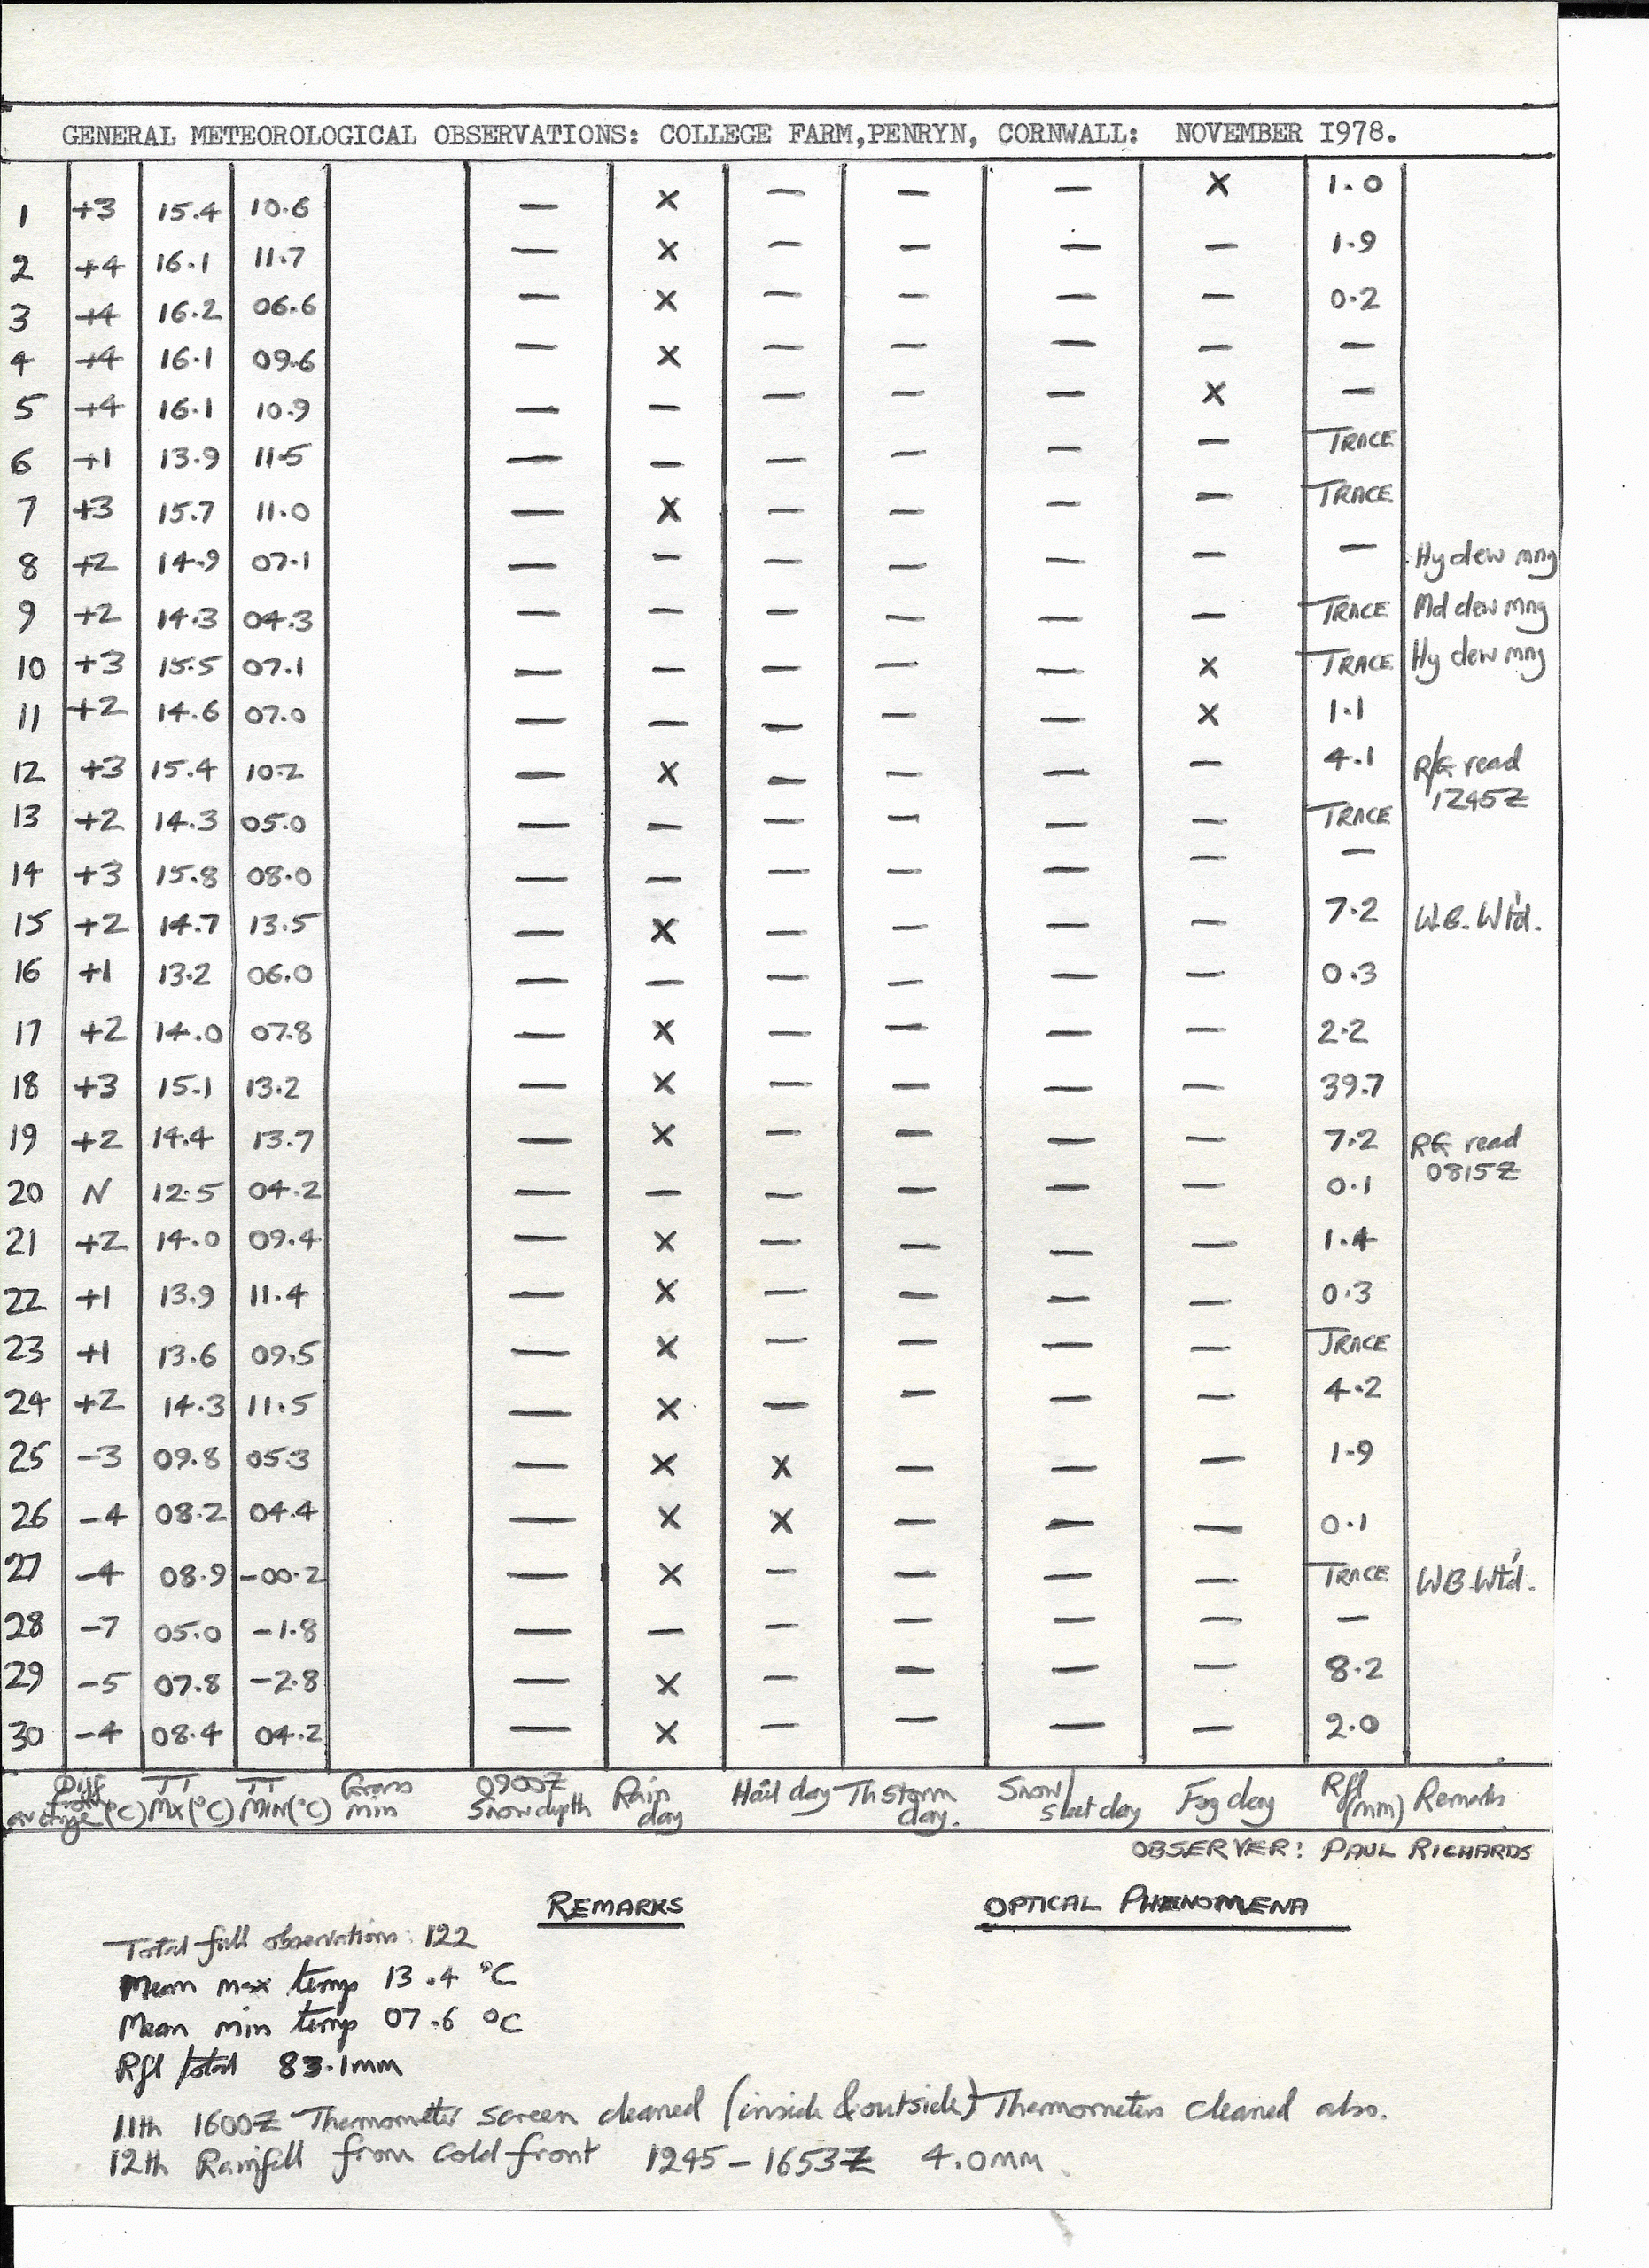 GENERAL METEOROLOGICAL OBSERVATIONS: COLLEGE FARM,PENRYN, CORNWALL: NOVEMBER 1978.
1 +3 15.4 10.6 — X — — — X 1.0
2 +4 16.1 11.7 — X — — — — 1.9
3 +4 16.2 06.6 — X — — — — 0.2
4 +4 16.1 09.6 — X — — — — —
5 +4 16.1 10.9 — — — — — X —
6 +1 13.9 11.5 — — — — — — TRACE
7 +3 15.7 11.0 — X — — — — TRACE
8 +2 14.9 07.1 — — — — — — — Hy dew mng
9 +2 14.3 04.3 — — — — — — TRACE Md dew mng
10 +3 15.5 07.1 — — — — — X TRACE Hy dew mng
11 +2 14.6 07.0 — — — — — X 1.1
12 +3 15.4 10.2 — X — — — — 4.1 R/G read
1245Z
13 +2 14.3 05.0 — — — — — — TRACE
14 +3 15.8 08.0 — — — — — — —
15 +2 14.7 13.5 — X — — — — 7.2 W.B. Wt'd.
16 +1 13.2 06.0 — — — — — — 0.3
17 +2 14.0 07.8 — X — — — — 2.2
18 +3 15.1 13.2 — X — — — — 39.7
19 +2 14.4 13.7 — X — — — — 7.2 RG read
0815Z
20 N 12.5 04.2 — — — — — — 0.1
21 +2 14.0 09.4 — X — — — — 1.4
22 +1 13.9 11.4 — X — — — — 0.3
23 +1 13.6 09.5 — X — — — — TRACE
24 +2 14.3 11.5 — X — — — — 4.2
25 -3 09.8 05.3 — X X — — — 1.9
26 -4 08.2 04.4 — X X — — — 0.1
27 -4 08.9 -00.2 — X — — — — TRACE WB Wt'd.
28 -7 05.0 -1.8 — — — — — — —
29 -5 07.8 -2.8 — X — — — — 8.2
30 -4 08.4 04.2 — X — — — — 2.0
Diff from average (°C) TT Mx (°C) TT MIN (°C) Grass min 0900Z Snow depth Rain day Hail day Th storm day. Snow/sleet day Fog day Rfl (mm) Remarks
OBSERVER: PAUL RICHARDS
REMARKS OPTICAL PHENOMENA
Total full observations: 122
Mean max temp 13.4 °C
Mean min temp 07.6 °C
Rfl total 83.1mm
11th 1600Z Thermometer screen cleaned (inside & outside) Thermometers cleaned also.
12th Rainfall from cold front 1245 - 1653Z 4.0mm.